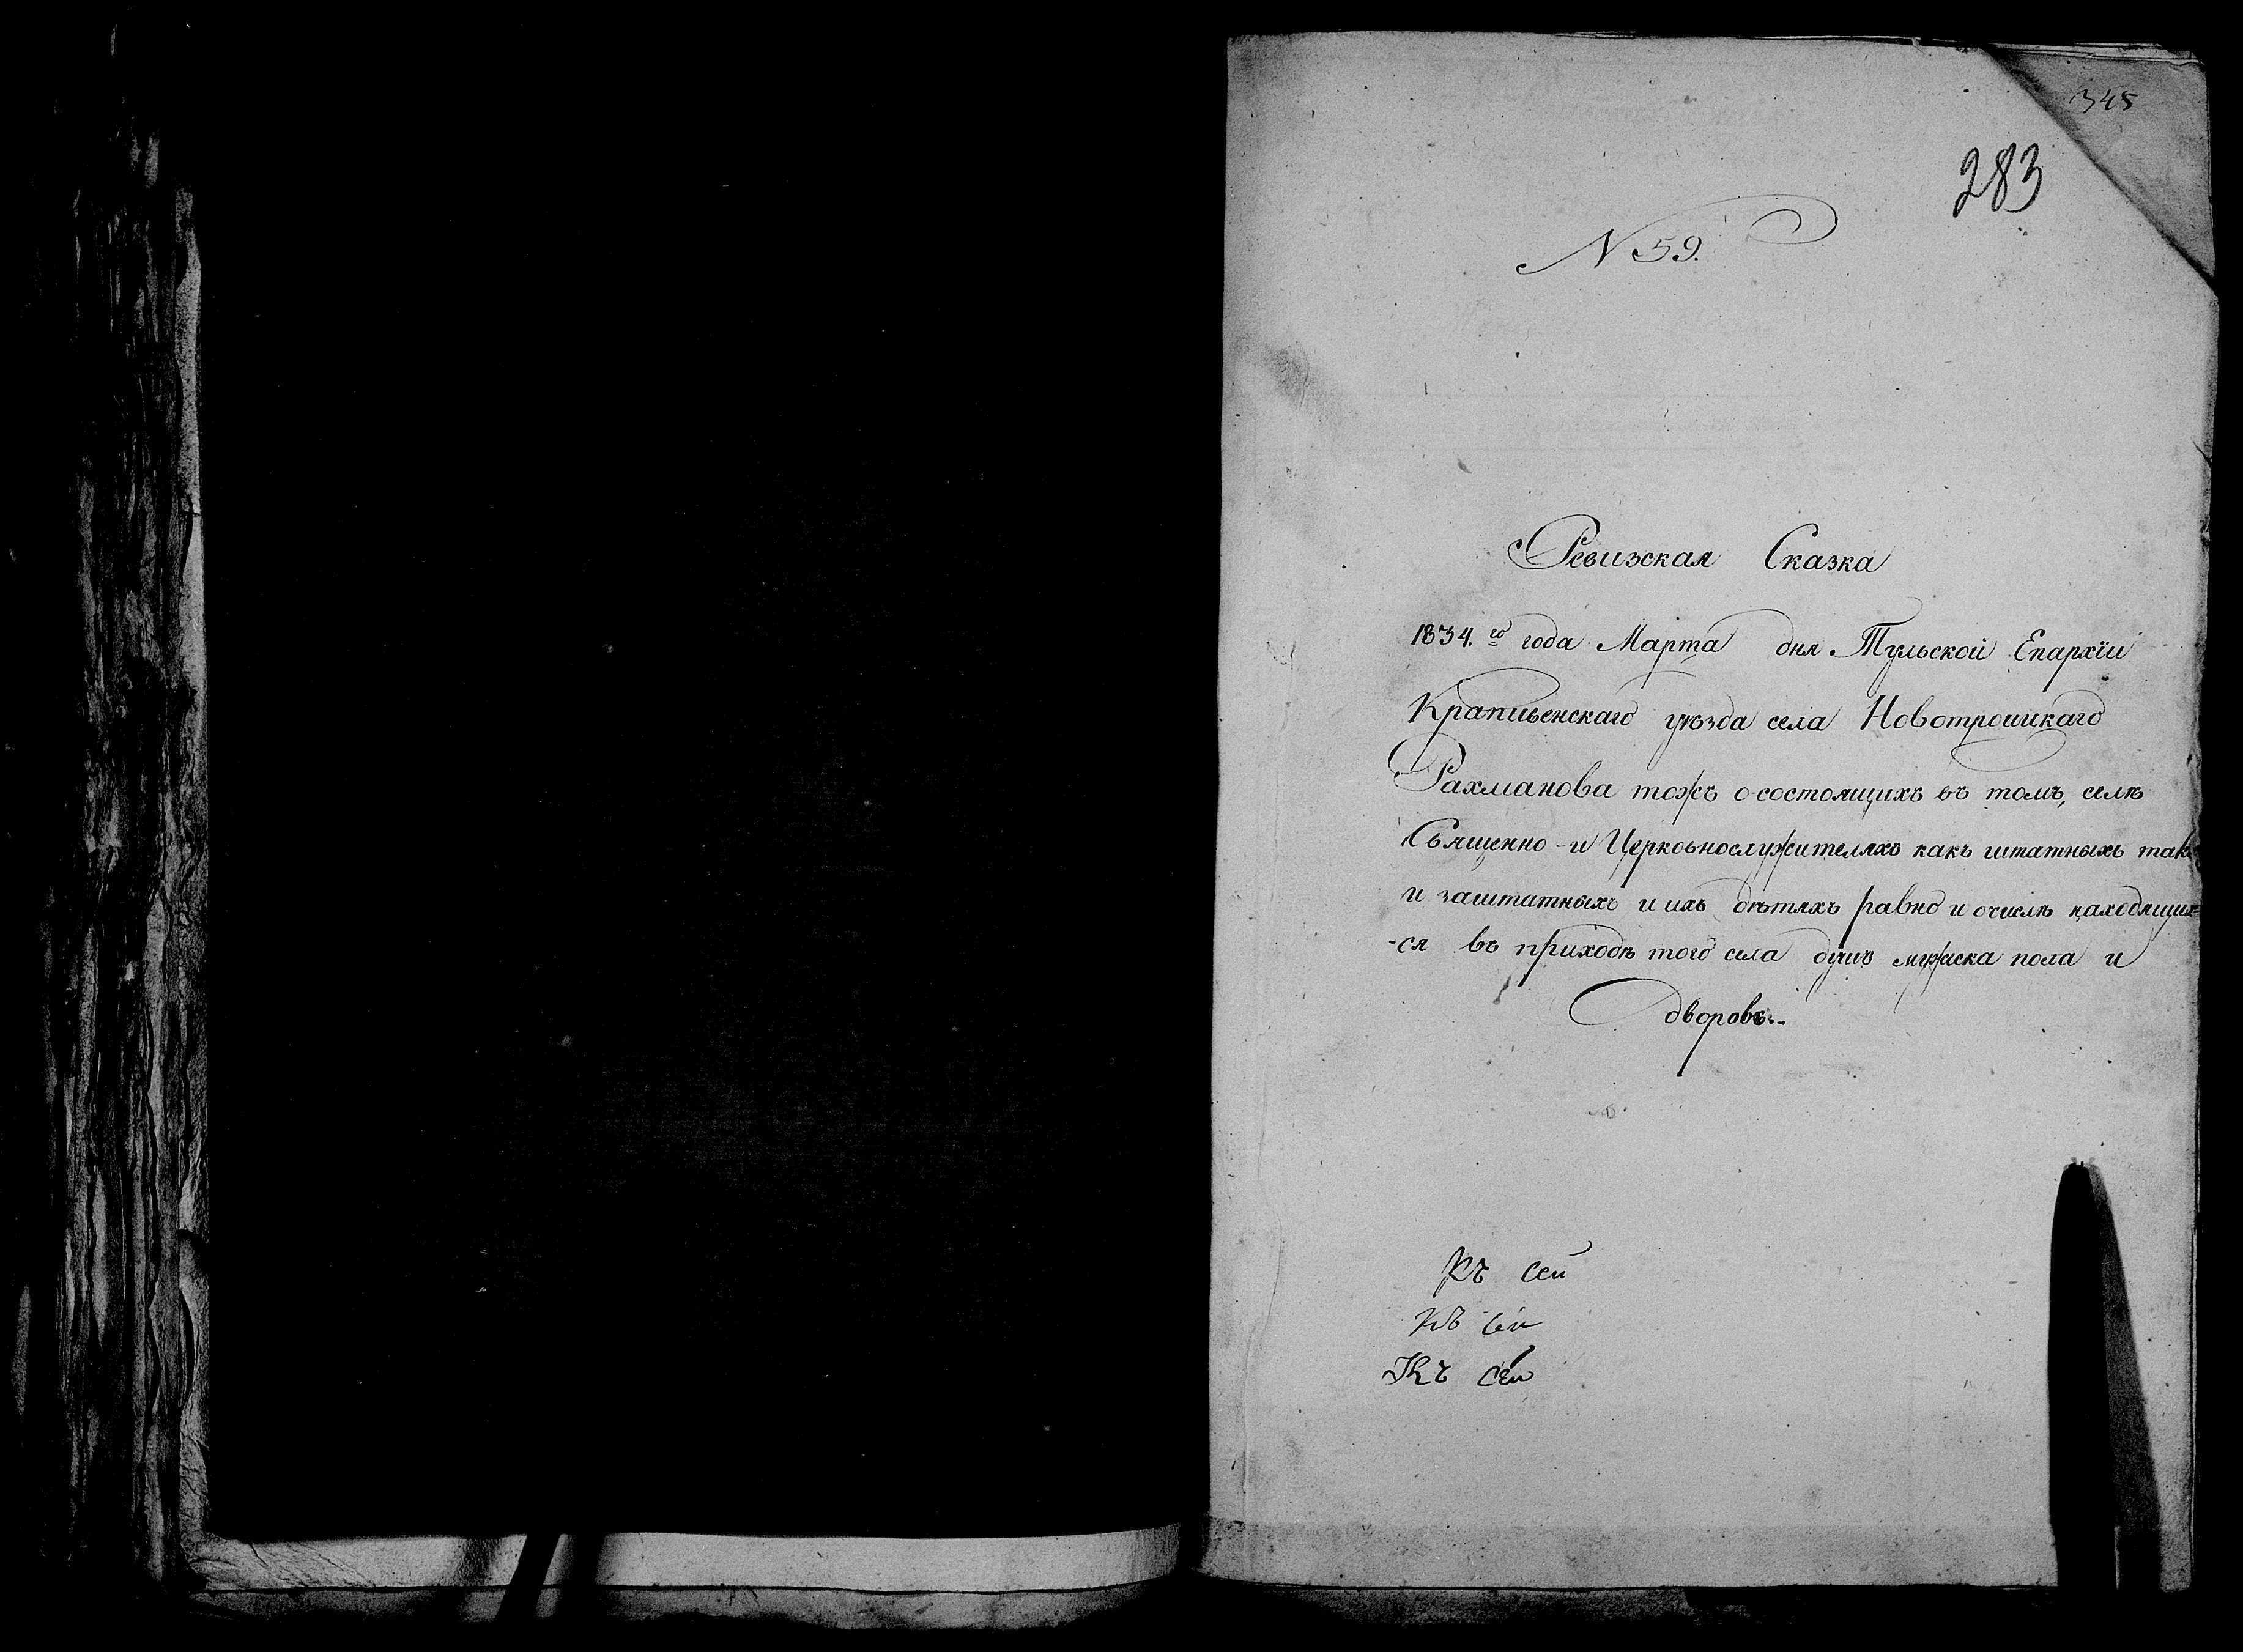 345
283
N 59.
Ревизская Сказка
1834.го года Марта дня Тульской Епархіи
Крапивенскаго уѣзда села Новотроицкаго
Рахманова тожъ о состоящихъ въ томъ, селѣ
Священно-и Церковнослужителяхъ какъ штатныхъ такъ
и заштатныхъ и ихъ дѣтяхъ равно и очислѣ находящих-
-ся въ приходѣ того села душъ мужеска пола и
дворовъ.-
Къ сей
Къ сей
Къ сей